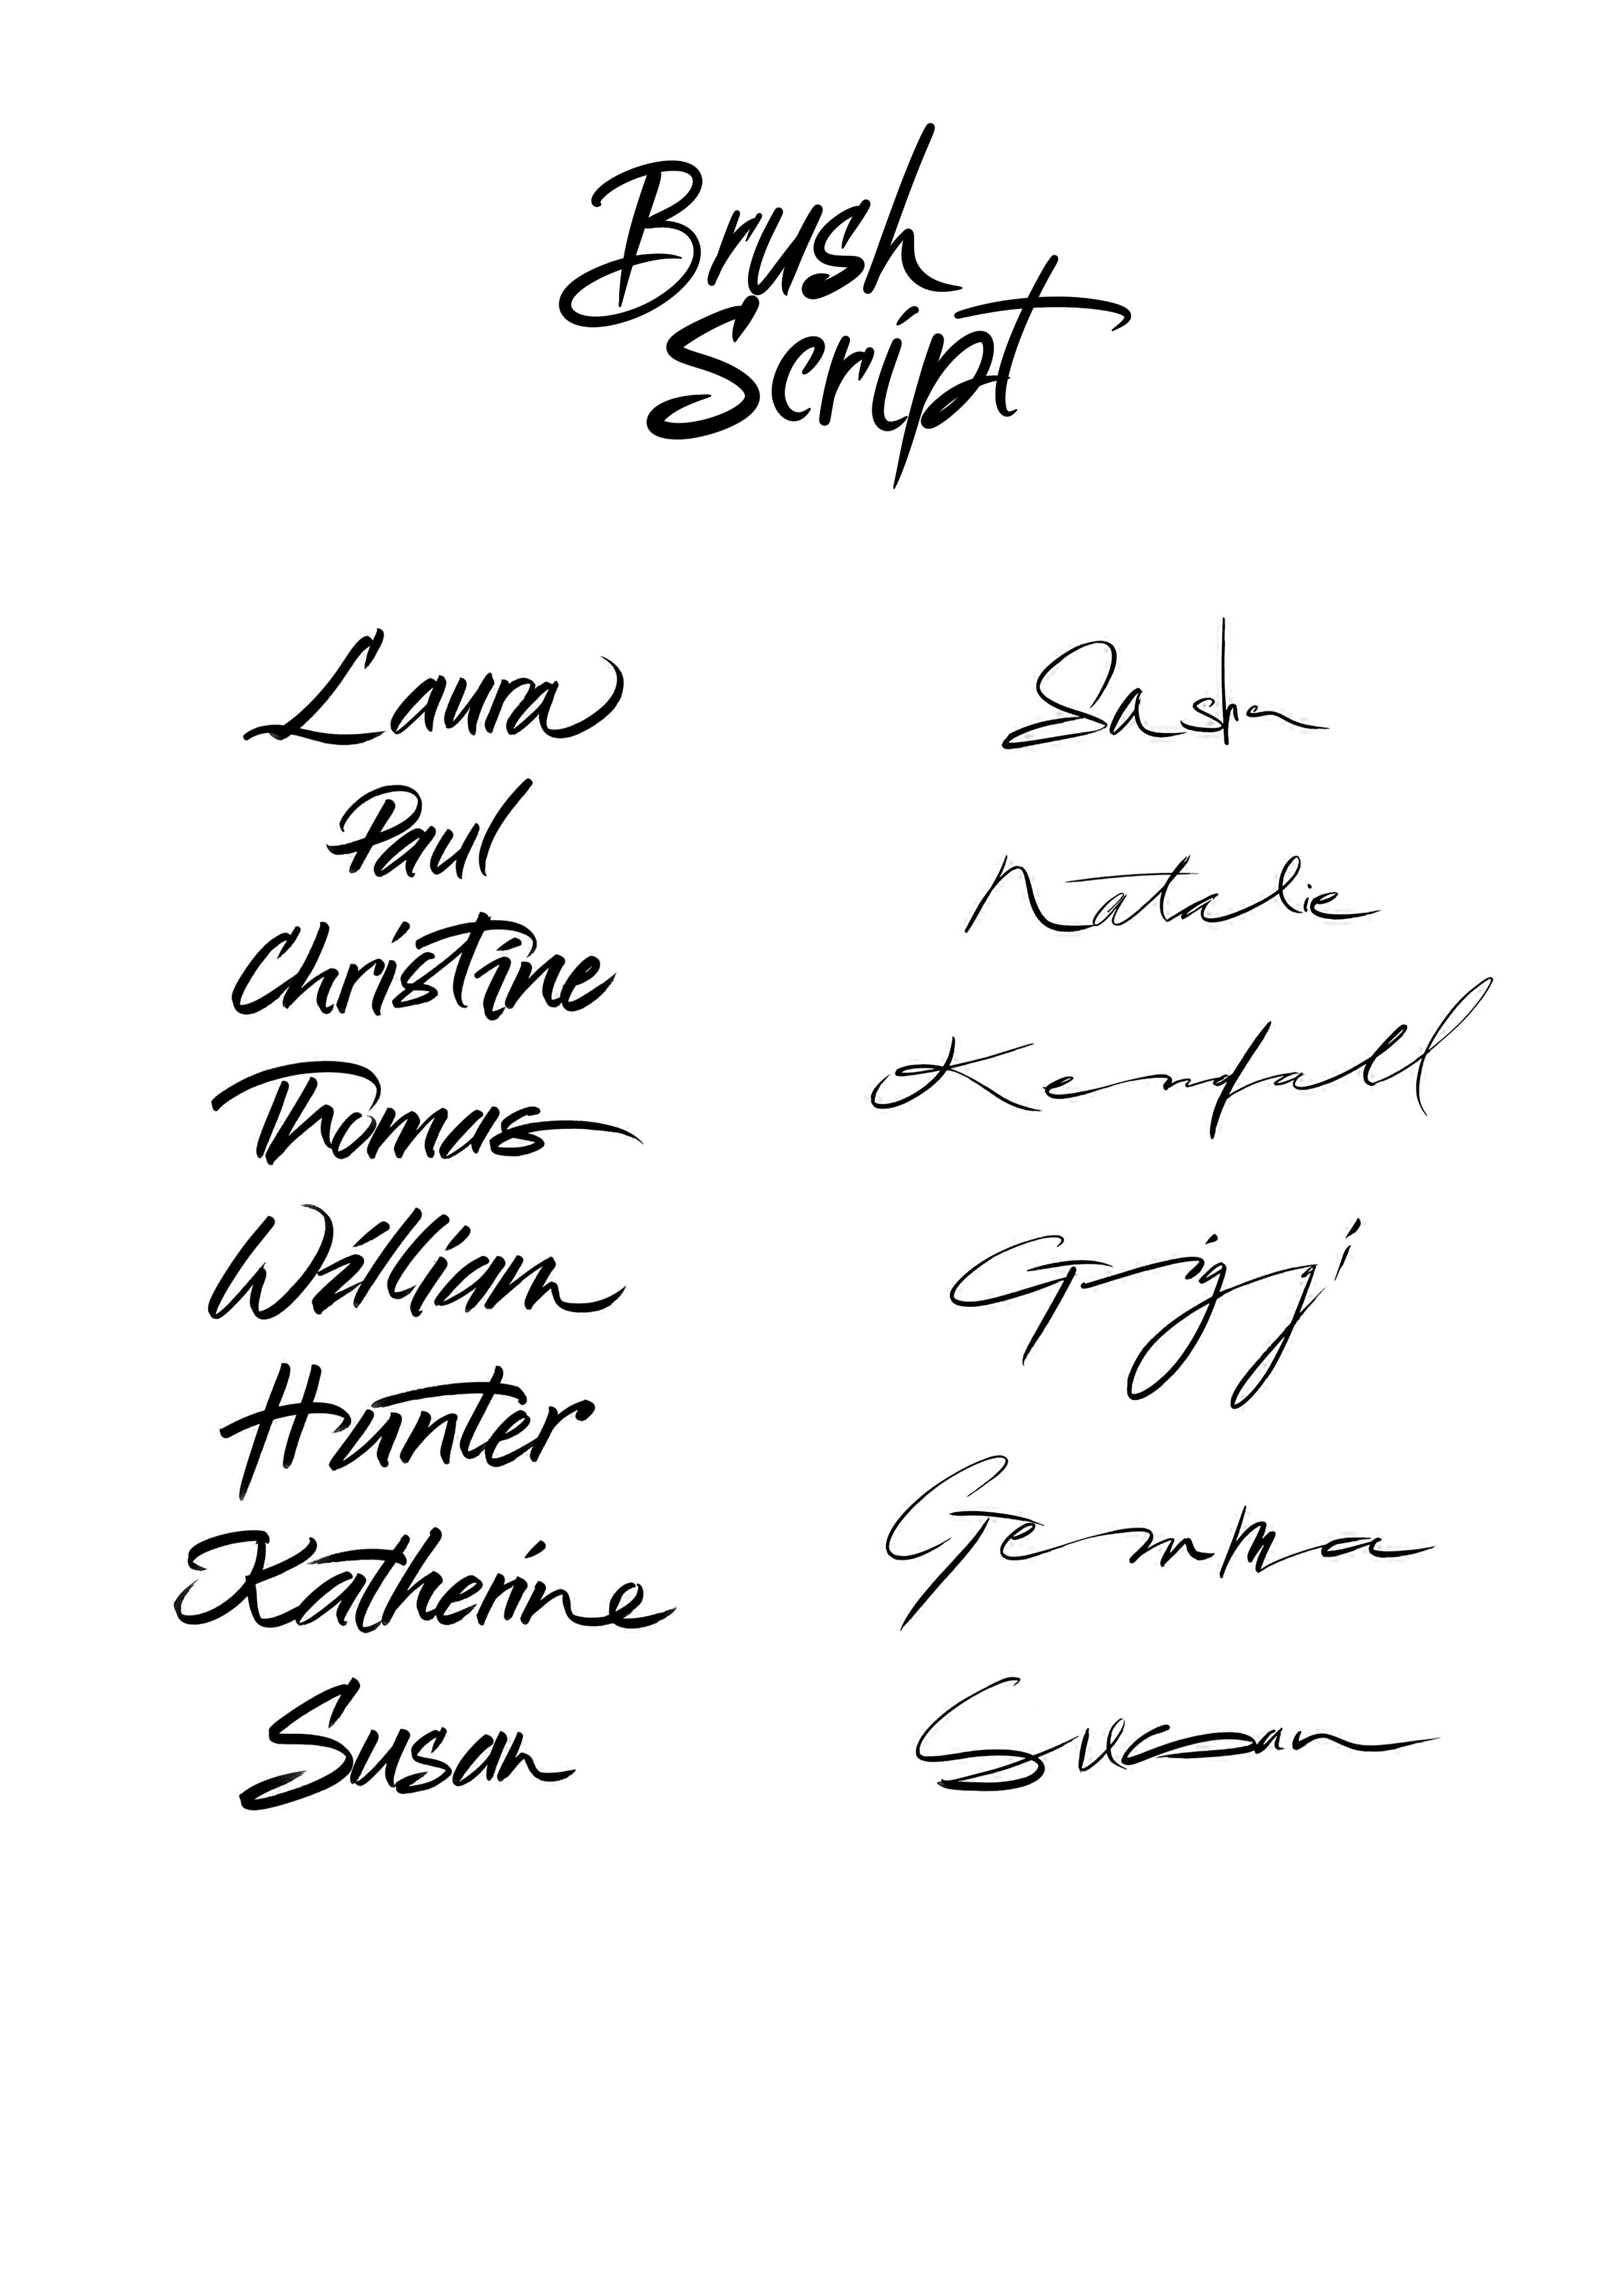 Brush
Script
Laura
Paul
Christine
Thomas
William
Hunter
Katherine
Susan
Natalie
Kendall
Gigi
Gemma
Susan